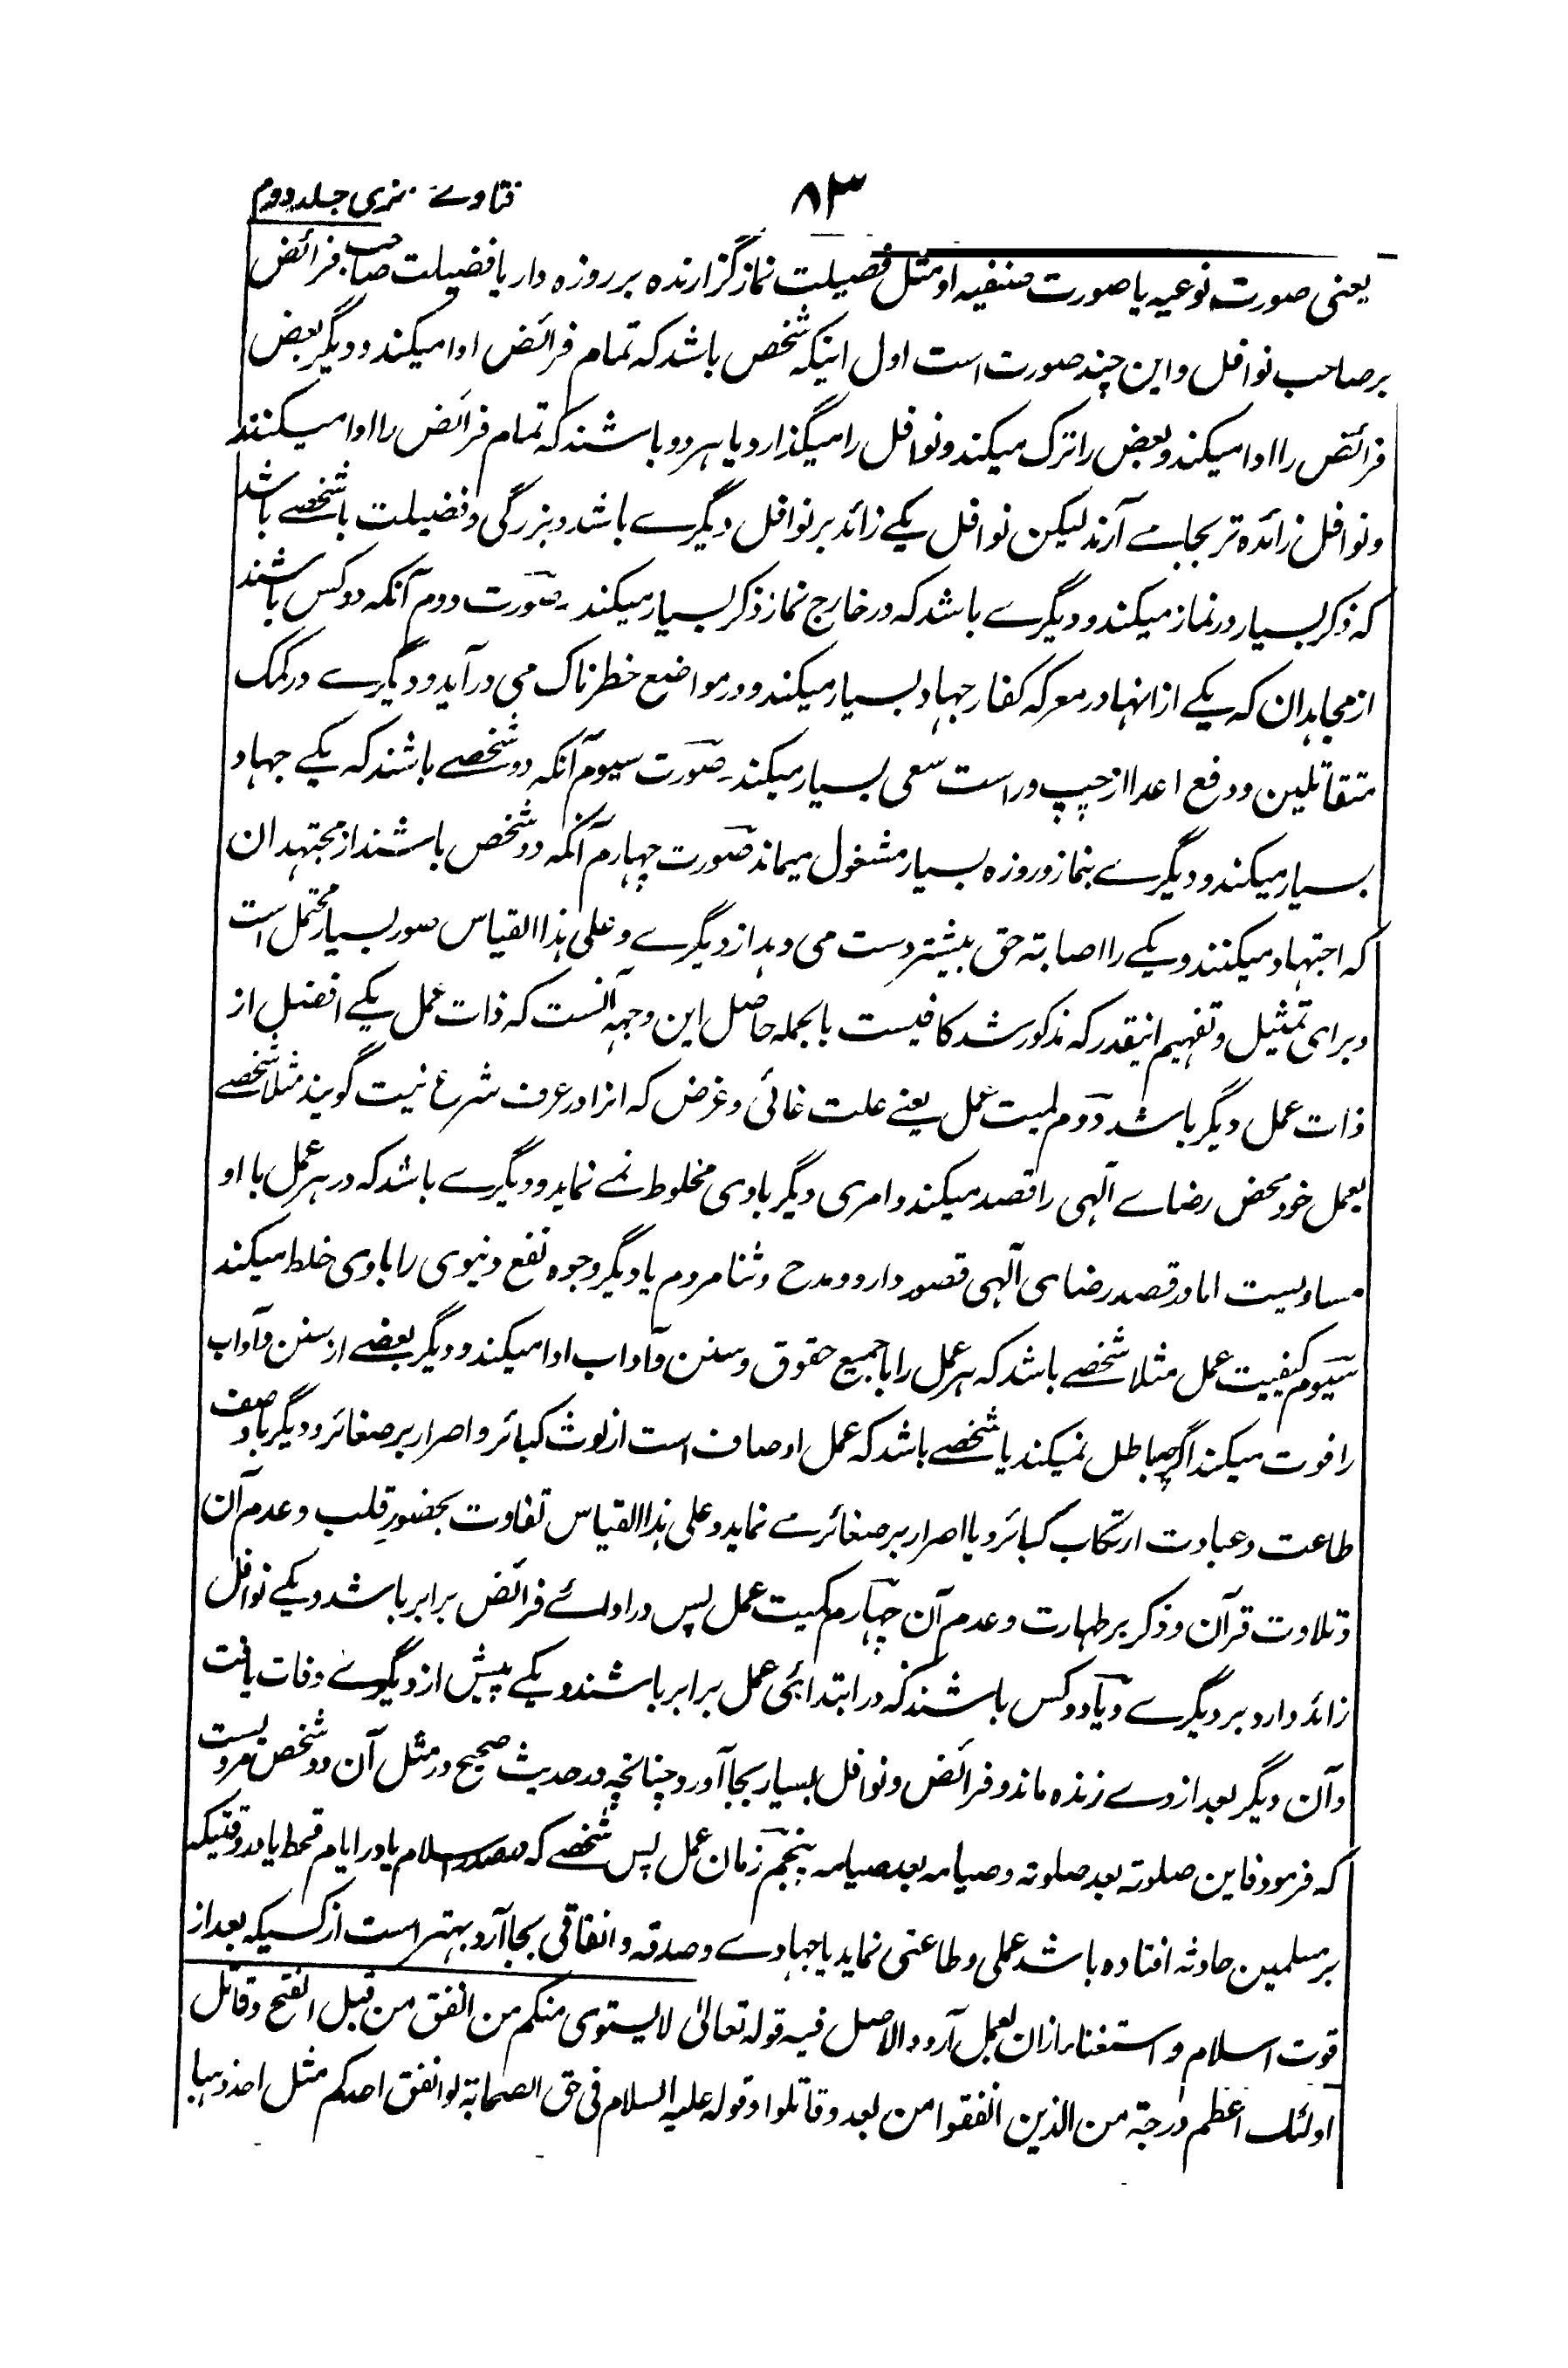 ۸۳
فتاوے عزیزی جلد دوم
یعنی صورت نوعیه یا صورت صنفیه او مثل فضیلت نماز گزارنده بر روزه دار یا فضیلت صاحب فرائض
بر صاحب نوافل و این چند صورت است اول اینکه شخص باشد که تمام فرائض ادا میکند و دیگر بعض
فرائض را ادا میکند و بعض را ترک میکند و نوافل را میگذارد یا هر دو باشند که تمام فرائض را ادا میکنند
و نوافل زائده تر بجا مے آرند لیکن نوافل یکے زائد بر نوافل دیگرے باشد و بزرگی و فضیلت با شخصے باشد
که ذکر بسیار در نماز میکند و دیگرے باشد که در خارج نماز ذکر بسیار میکند۔ صورت دوم آنکه دو کس باشند
از مجاهدان که یکے از انها در معرکه کفار جهاد بسیار میکند و در مواضع خطرناک می در آید و دیگرے در کمک
متقاتلین و دفع اعدا از چپ و راست سعی بسیار میکند۔ صورت سیوم آنکه دو شخصے باشند که یکے جهاد
بسیار میکند و دیگرے بنماز و روزه بسیار مشغول میماند صورت چهارم آنکه دو شخص باشند از مجتهدان
که اجتهاد میکنند و یکے را اصابته حق بیشتر دست می دهد از دیگرے و علی هذا القیاس صور بسیار محتمل است
و برای تمثیل و تفهیم اینقدر که مذکور شد کافیست بالجمله حاصل این وجهه آنست که ذات عمل یکے افضل از
ذات عمل دیگر باشد دوم لمیت عمل یعنے علت غائی و غرض که انرا در عرف شرع نیت گویند مثلا شخصے
بعمل خود محض رضاے الٓهی را قصد میکند و امری دیگر باوی مخلوط نمے نماید و دیگرے باشد که در هر عمل با او
مساویست اما در قصد رضای الٓهی قصور دارد و مدح و ثنا مردم یا دیگر وجوه نفع دنیوی را باوی خلط میکند
سیوم کیفیت عمل مثلا شخصے باشد که هر عمل را با جمیع حقوق و سنن و آداب ادا میکند و دیگر بعضے از سنن و آداب
را فوت میکند اگرچه باطل نمیکند یا شخصے باشد که عمل او صاف است از لوث کبائر و اصرار بر صغائر و دیگر با وصف
طاعت و عبادت ارتکاب کبائر و یا اصرار بر صغائر مے نماید و علی هذا القیاس تفاوت بحضورِ قلب و عدم آن
و تلاوت قرآن و ذکر بر طهارت و عدم آن چهارم کمیت عمل پس در ادائے فرائض برابر باشد و یکے نوافل
زائد دارد بر دیگرے و یا دو کس باشند که در ابتدائی عمل برابر باشند و یکے پیش از دیگرے وفات یافت
و آن دیگر بعد از وے زنده ماند و فرائض و نوافل بسیار بجا آورد چنانچه در حدیث صحیح در مثل آن دو شخص مرویست
که فرمود فاین صلوته بعد صلوته و صیامه بعد صیامه پنجم زمان عمل پس شخصے که در صدر اسلام یا در ایام قحط یا در وقتیکه
بر مسلمین حادثه افتاده باشد عملی و طاعتی نماید یا جهادے و صدقه و انفاقی بجا آرد بهتر است از کسیکه بعد از
قوت اسلام و استغناء ازان بعمل آرد و الاصل فیه قوله تعالیٰ لا یستوی منکم من انفق من قبل الفتح و قاتل
اولئک اعظم درجة من الذین انفقوا من بعد و قاتلوا و قوله علیه السلام فی حق الصحابة لو انفق احدکم مثل احد ذهبا